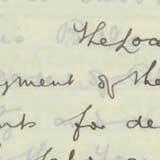 The Loa
yment of the
nts for de